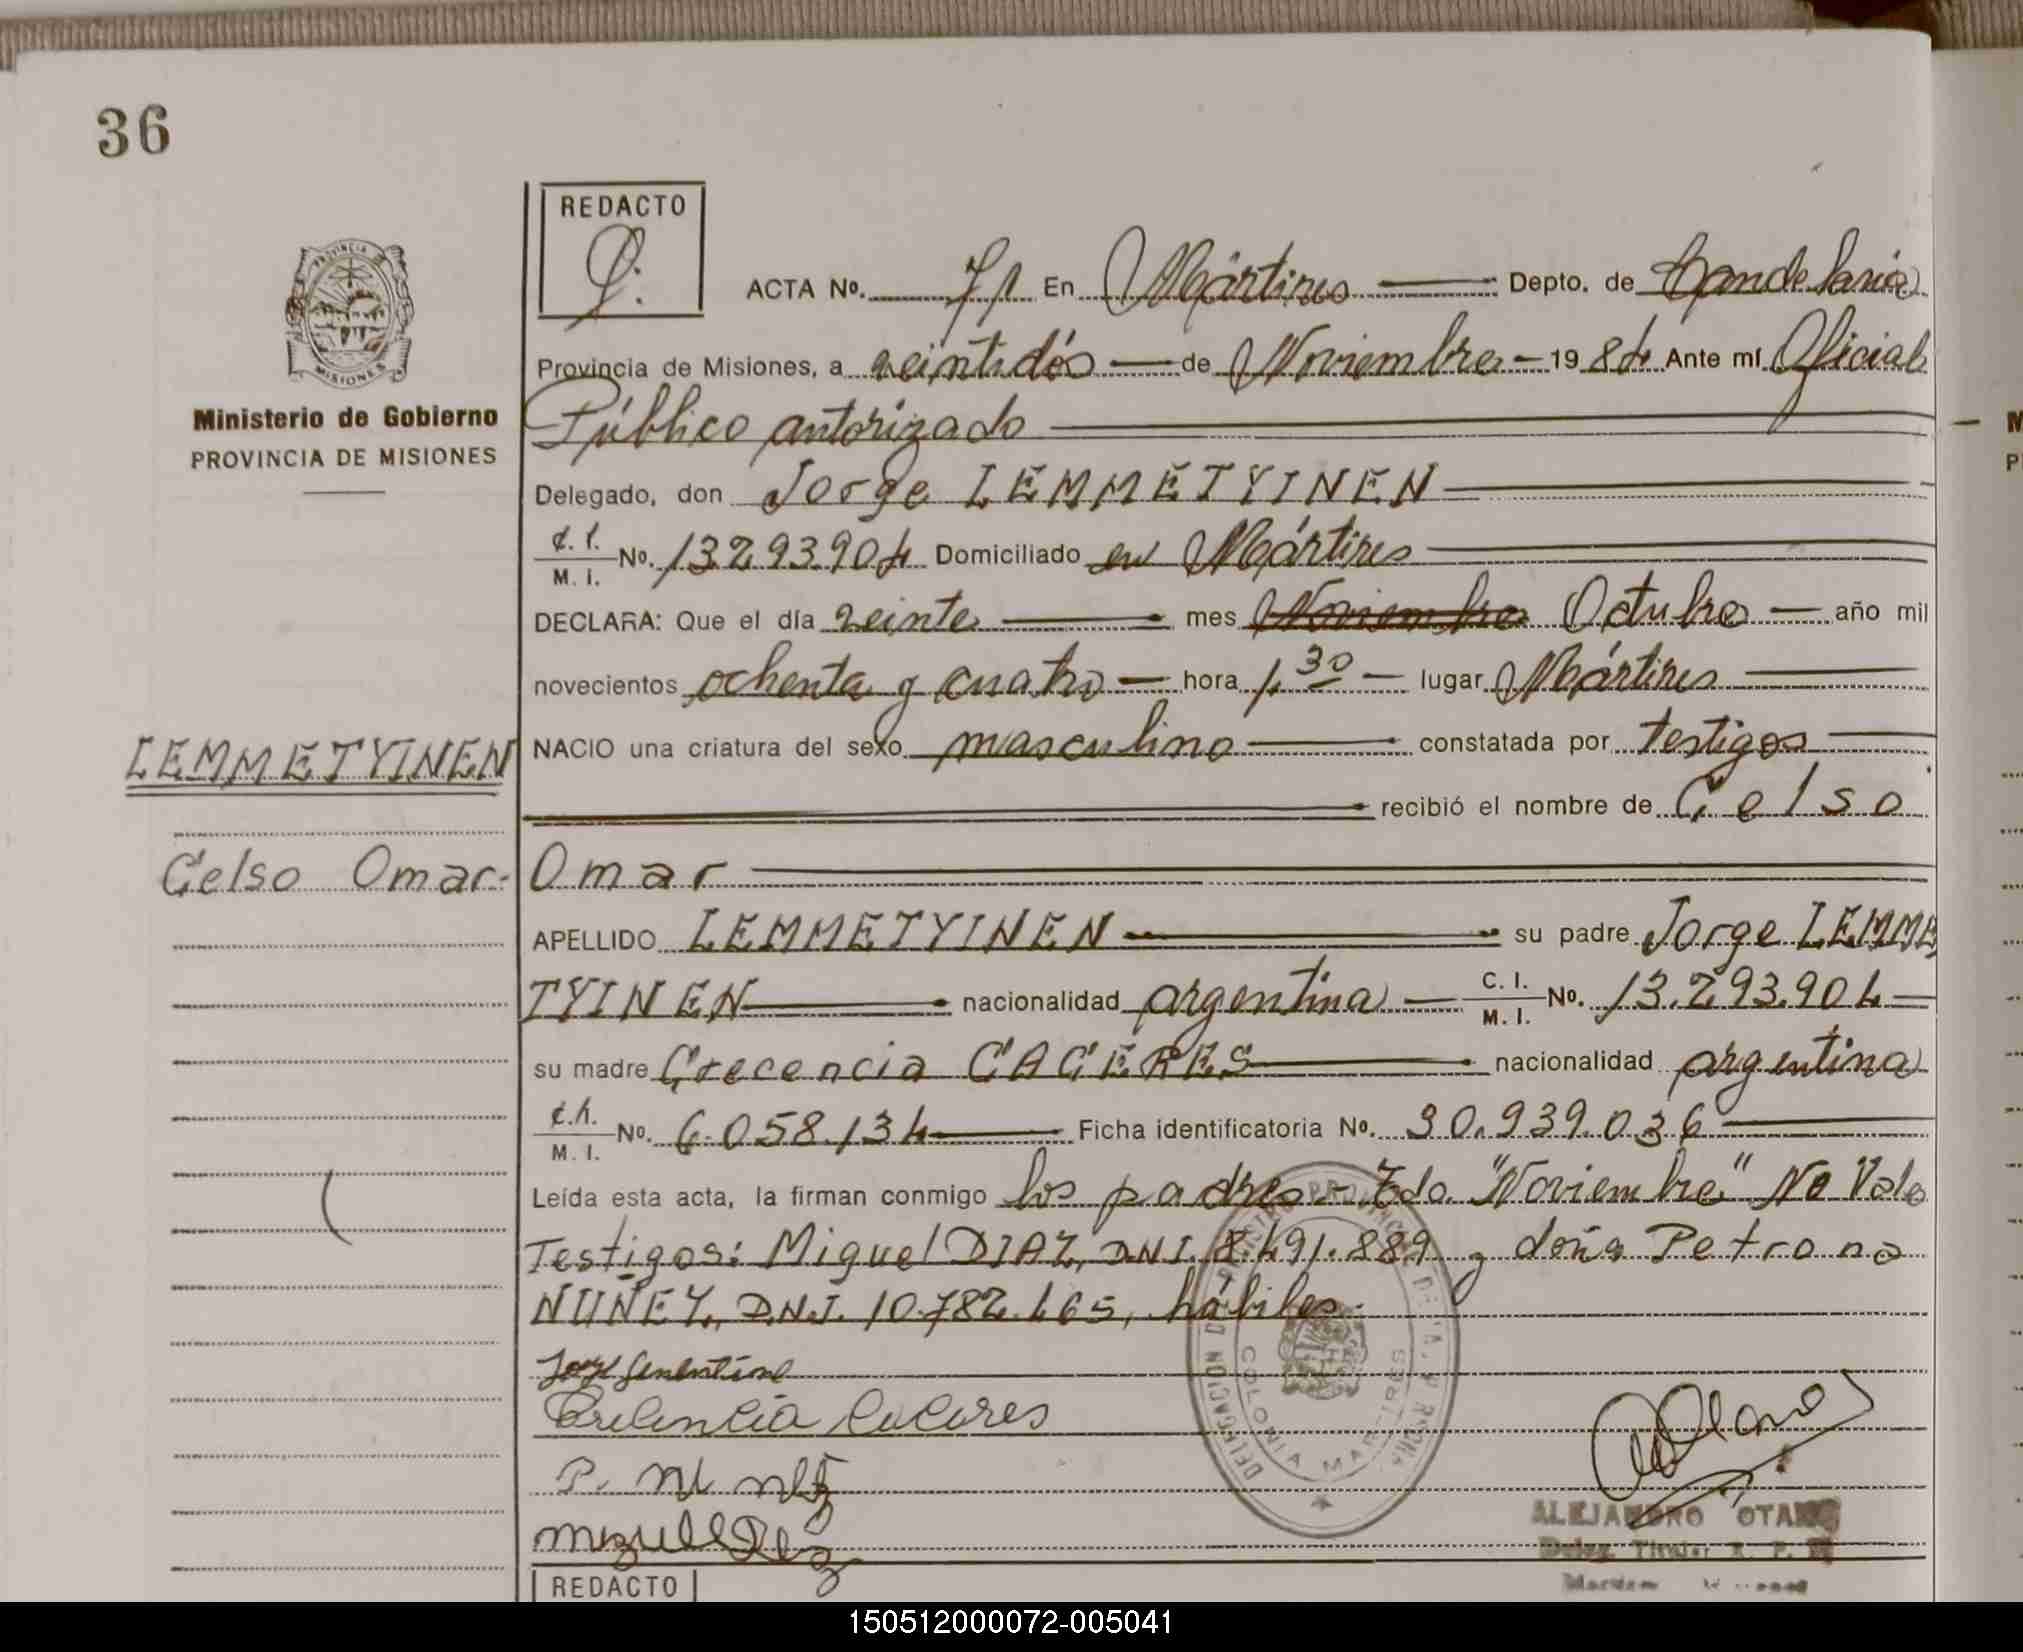 36
REDACTO
ACTA Nº. 71 En Mártires Depto. de Candelaria
PROVINCIA DE MISIONES
Provincia de Misiones, a veintidós de Noviembre 1984 Ante mí Oficial
Ministerio de Gobierno
PROVINCIA DE MISIONES
Público autorizado
Delegado, don Jorge LEMMETYINEN
M. I. No. 13293904 Domiciliado en Mártires
DECLARA: Que el día veinte mes Noviembre Octubre año mil
novecientos ochenta y cuatro hora 1,30 lugar Mártires
LEMMETYINEN
NACIO una criatura del sexo masculino constatada por testigos
recibió el nombre de Celso
Celso Omar.
Omar
APELLIDO LEMMETYINEN su padre Jorge LEMME
TYINEN nacionalidad argentina C. I. M. I. Nº. 13.293.904
su madre Crecencia CACERES nacionalidad argentina
M. I. Nº. 6.058.134 Ficha identificatoria Nº. 30.939.036
Leída esta acta, la firman conmigo los padres. Tdo. "Noviembre" No Vale
Testigos: Miguel DIAZ, D.N.I. 8.491.889 y doña Petrona
NUÑEZ, D.N.I. 10.782.465, hábiles.
DELEGACION
COLONIA MARTIRES
ALEJANDRO OTANO
Deleg. Titular R. P.
REDACTO
150512000072-005041